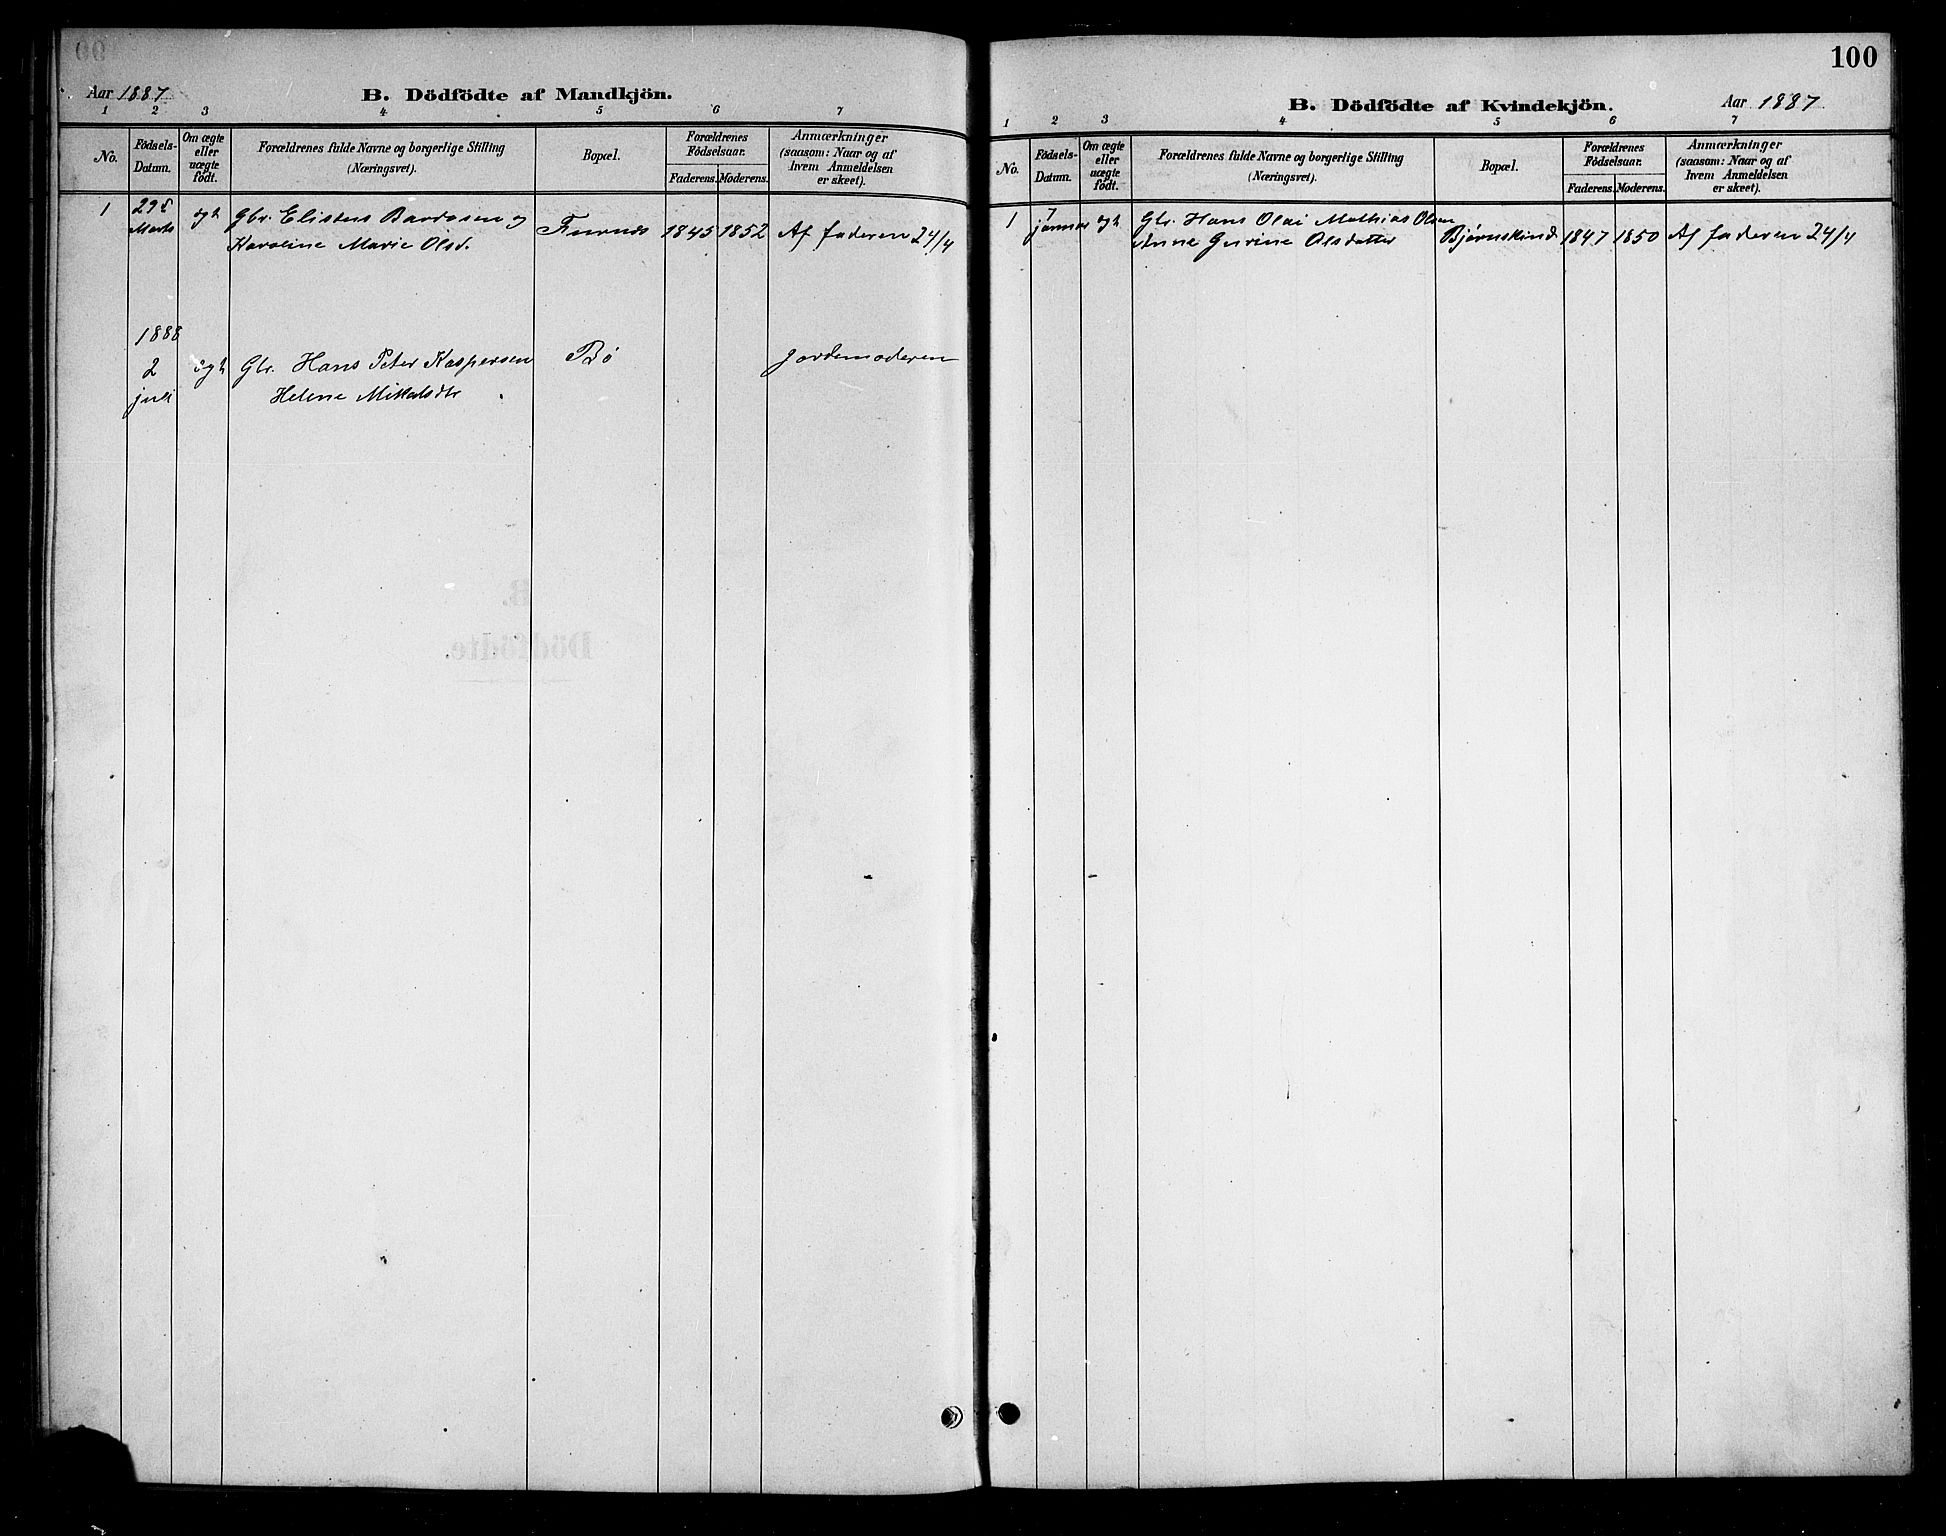 Aar 1887
B. Dödfödte af Mandkjön.
1 2 3 4 5 6 7
No.
Födsels-Datum.
Om ægte eller uægte födt.
Forældrenes fulde Navne og borgerlige Stilling (Næringsvei).
Bopæl.
Forældrenes Födselsaar.
Faderens. Moderens.
Anmærkninger (saasom: Naar og af hvem Anmeldelsen er skeet).
1 29 Marts ægt Gbr. Eliseus Bardosen og 1845 1852 Af faderen 24/4
Karoline Marie Olsd.
1888
2 juli ægt Gbr. Hans Peter Kaspersen Bö jordemoderen
Helene Mikalsdtr
100
B. Dödfödte af Kvindekjön.
Aar 1887.
1 2 3 4 5 6 7
No.
Födsels-Datum.
Om ægte eller uægte födt.
Forældrenes fulde Navne og borgerlige Stilling (Næringsvei).
Bopæl.
Forældrenes Födselsaar.
Faderens. Moderens.
Anmærkninger (saasom: Naar og af hvem Anmeldelsen er skeet).
1 7 januar ægt Gbr. Hans Olai Mathias Olsen
Anne Gurine Olsdatter Bjørnskind 1847 1850 Af faderen 24/4
B.
Dödfödte.